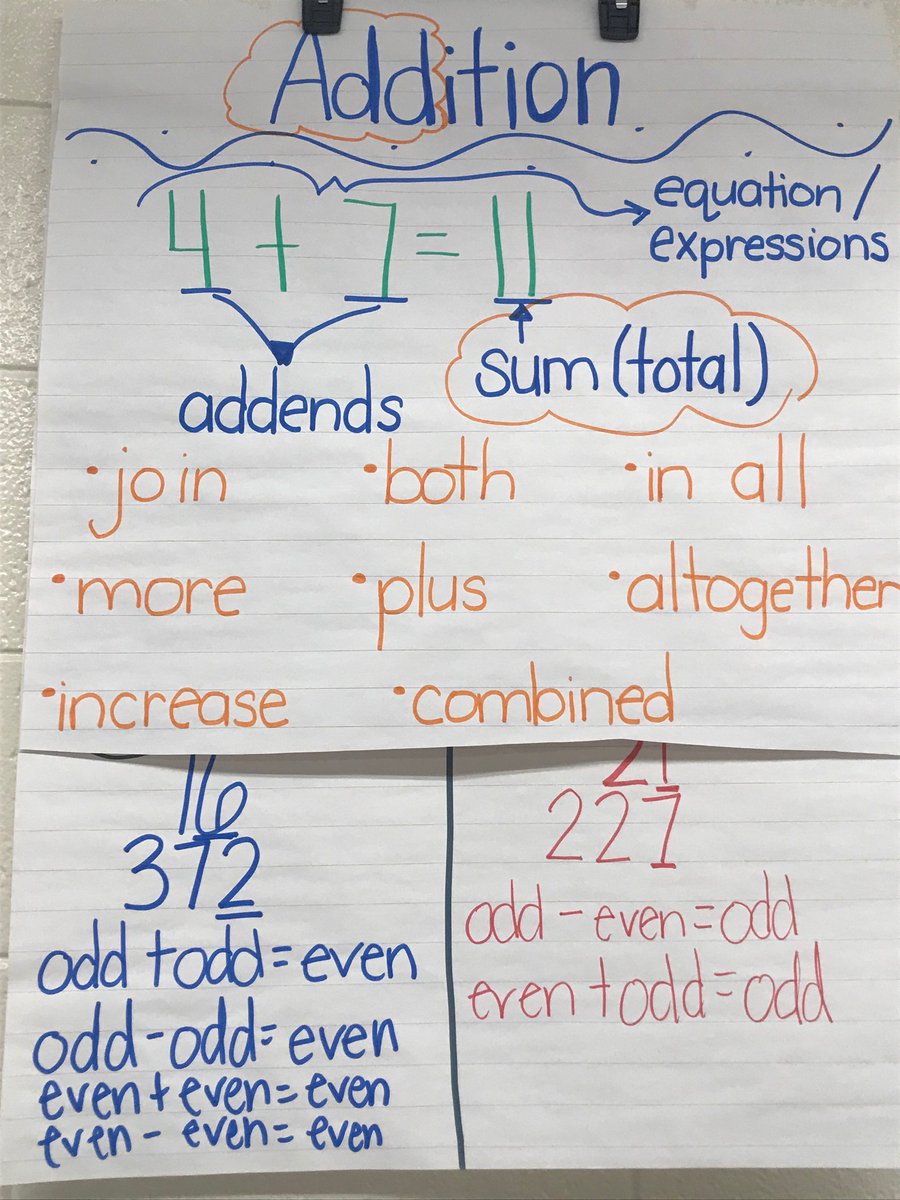 Addition
4 + 7 = 11
equation/
expressions
addends
sum (total)
•join •both •in all
•more •plus •altogether
•increase •combined
16
372
odd + odd = even
odd - odd = even
even + even = even
even - even = even
21
227
odd - even = odd
even + odd = odd